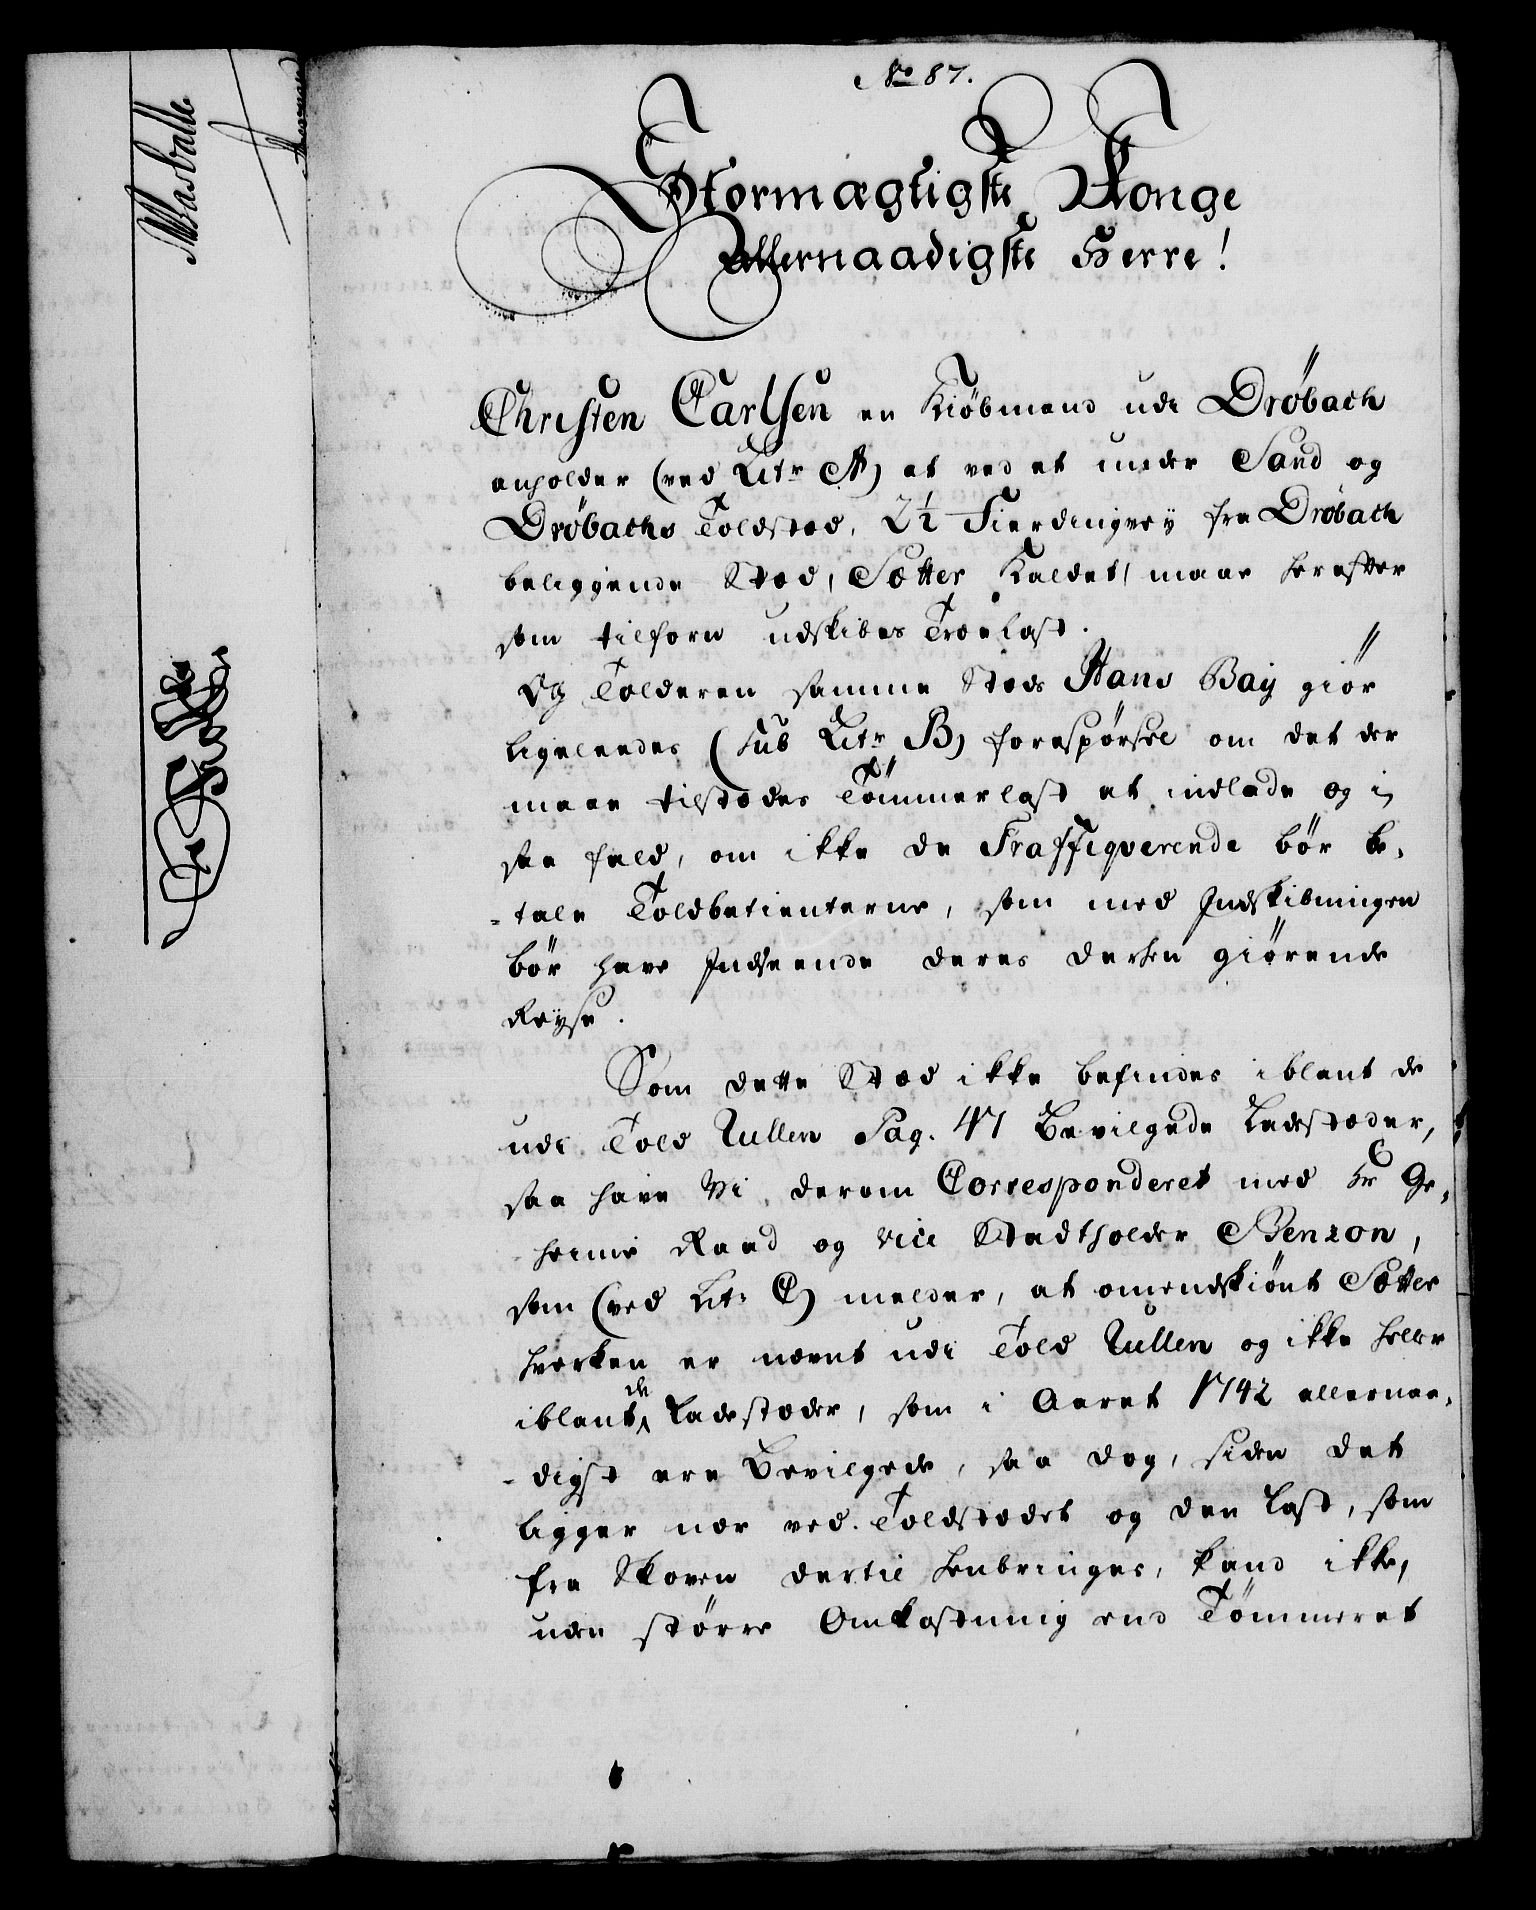 No 87.
Stormægtigste Konge
Allernaadigste Herre!
Christen Carlsen en Kiøbmand udi Drøbach
anholder (ved Litr A) at ved et under Sand og
Drøbachs Toldstæd, 2½ Fierdingvey fra Drøbach
beliggende Stæd, Sætter kaldet, maae herefter
som tilforn udskibes Trælast.
Og Tolderen samme Stæds Hans Bay giør
ligeleedes (sub Litr B) forespørsel om det der
maae tilstædes Tømmerlast at indlade og i
saa fald, om ikke de Traffiqverende bør be-
-tale Toldbetienterne, som med Indskibningen
bør have Indseende deres derhen giørende
Reyse.
Som dette Stæd ikke befindes iblant de
udi Told Rullen Pag. 47 Bevilgede Ladestæder,
saa have Vi derom Corresponderet med Hr Ge-
heime Raad og Vice Stadtholder Benzon,
som (ved Litr C) melder, at omendskiønt Sætter
hverken er nævnt udi Told Rullen og ikke heller
iblant de Ladestæder, som i Aaret 1742 allernaa-
-digst ere Bevilgede, saa dog, siden det
ligger nær ved Toldstædet og den Last, som
fra Skoven dertil henbringes, kand ikke,
uden større Omkostning end Tømmeret